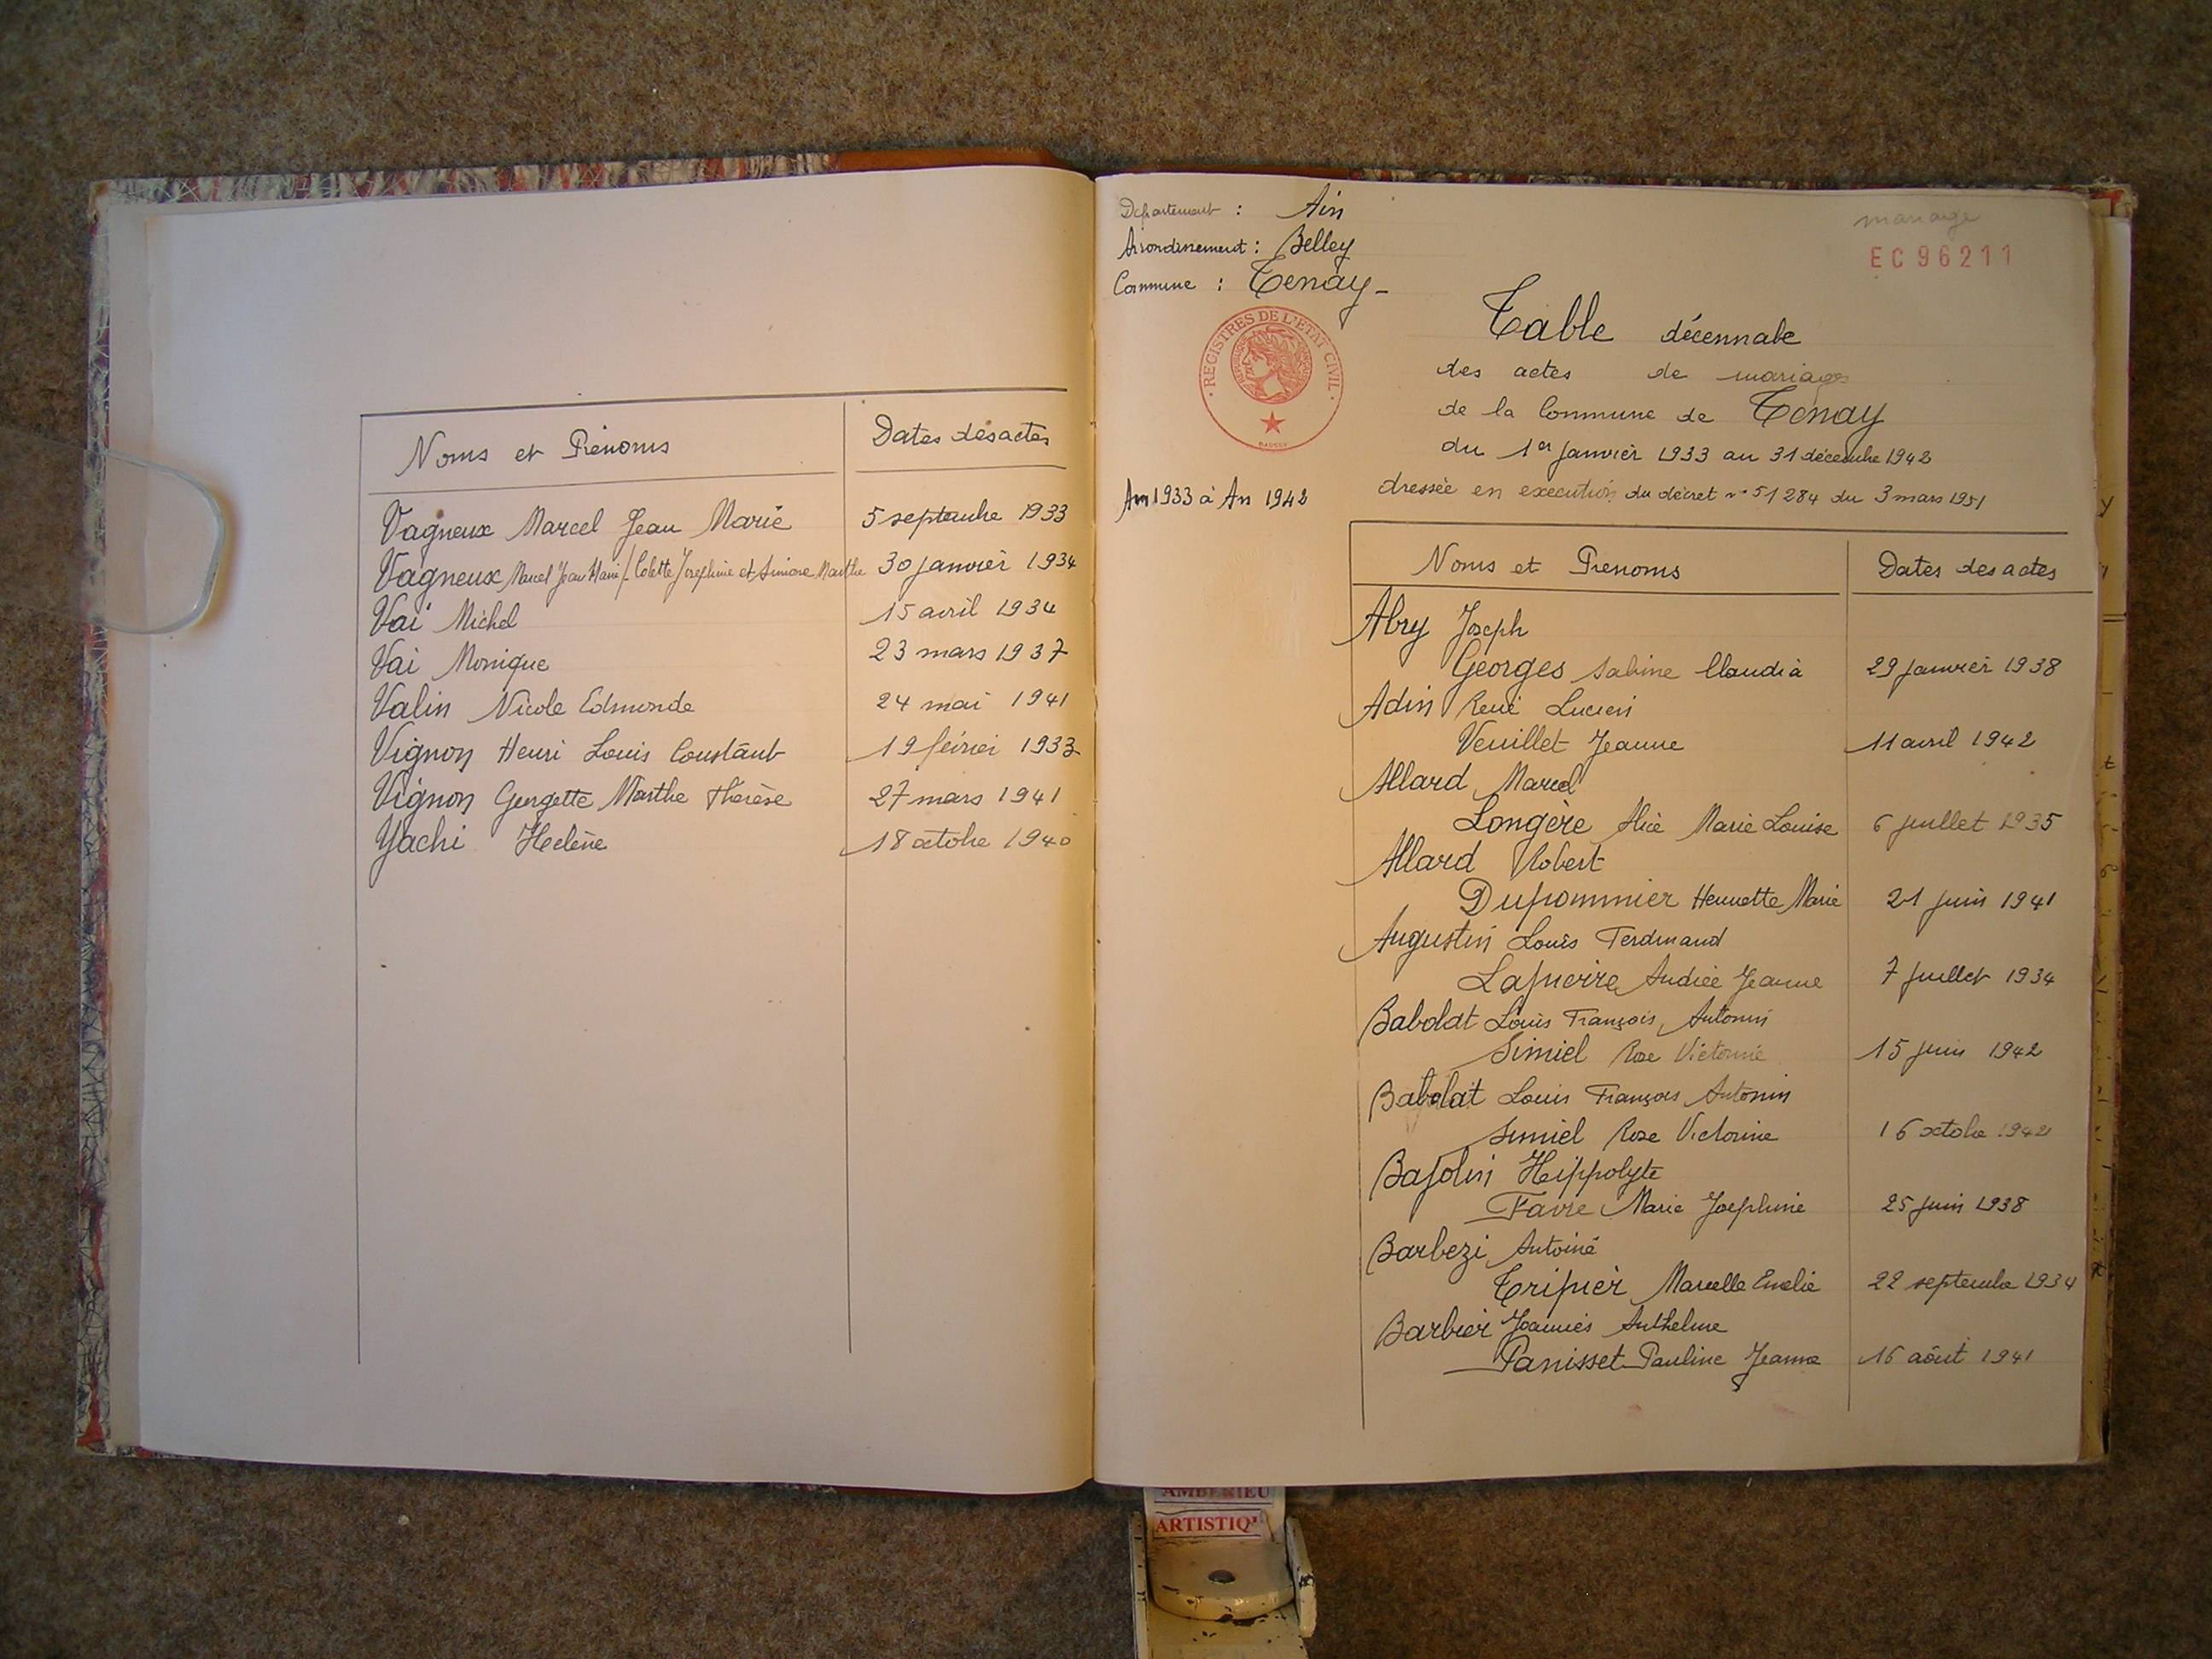 Noms et Prénoms Dates des actes
Vagneux Marcel Jean Marie 5 septembre 1933
Vagneux Marcel Jean Marie / Colette Joséphine et Simone Marthe 30 janvier 1934
Vai Michel 15 avril 1934
Vai Monique 23 mars 1937
Valin Nicole Edmonde 24 mai 1941
Vignon Henri Louis Constant 19 février 1933
Vignon Georgette Marthe Thérèse 27 mars 1941
Yachi Helène 18 octobre 1940
Département : Ain
Arrondissement : Belley
Commune : Tenay -
mariage
EC96211
REGISTRES DE L'ETAT CIVIL
Table décennale
des actes de mariages
de la Commune de Tenay
du 1er janvier 1933 au 31 décembre 1942
An 1933 à An 1942
dressée en execution du décret n° 51 284 du 3 mars 1951
Noms et Prenoms Dates des actes
Abry Joseph
Georges Sabine Claudia 29 janvier 1938
Adin René Lucien
Veuillet Jeanne 11 avril 1942
Allard Marcel
Longère Alice Marie Louise 6 juillet 1935
Allard Robert
Dupommier Henriette Marie 21 juin 1941
Augustin Louis Ferdinand
Lapierre Andrée Jeanne 7 juillet 1934
Babolat Louis François Antonin
Simiel Rose Victorine 15 juin 1942
Babolat Louis François Antonin
Simiel Rose Victorine 16 octobre 1942
Bajolin Hippolyte
Favre Marie Joséphine 25 juin 1938
Barbezi Antoine
Tripier Marcelle Emélie 22 septembre 1934
Barbier Joannès Anthelme
Panisset Pauline Jeanne 16 août 1941
AMBERIEU
ARTISTIQ